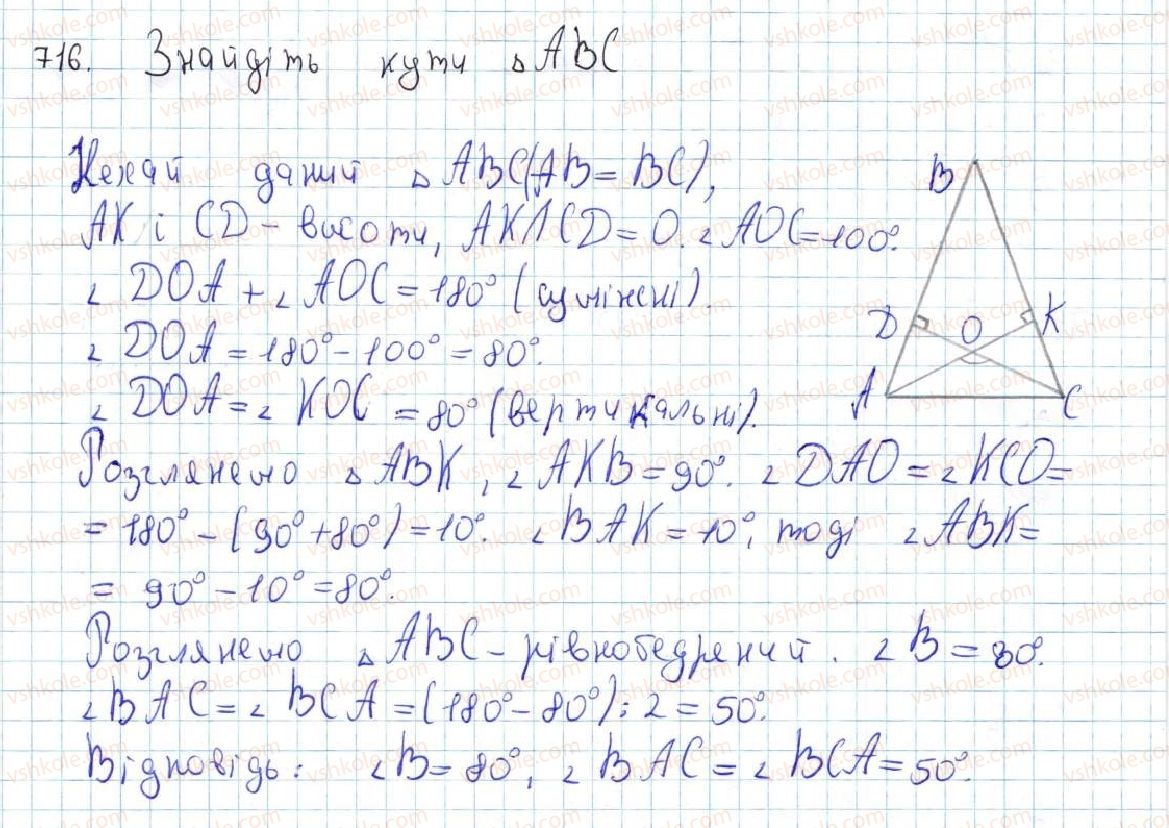 716. Знайдіть кути △ABC
Нехай даний △ABC(AB = BC),
AK і CD – висоти, AK∧CD = O. ∠AOC = 100°.
∠DOA + ∠AOC = 180° (суміжні).
∠DOA = 180° – 100° = 80°.
∠DOA = ∠KOC = 80° (вертикальні).
Розглянемо △ABK, ∠AKB = 90°. ∠DAO = ∠KCO =
= 180° – (90° + 80°) = 10°. ∠BAK = 10°, тоді ∠ABK =
= 90° – 10° = 80°.
Розглянемо △ABC – рівнобедрений. ∠B = 80°.
∠BAC = ∠BCA = (180° – 80°) : 2 = 50°.
Відповідь: ∠B = 80°, ∠BAC = ∠BCA = 50°.
B
Д O K
A C
vshkole.com